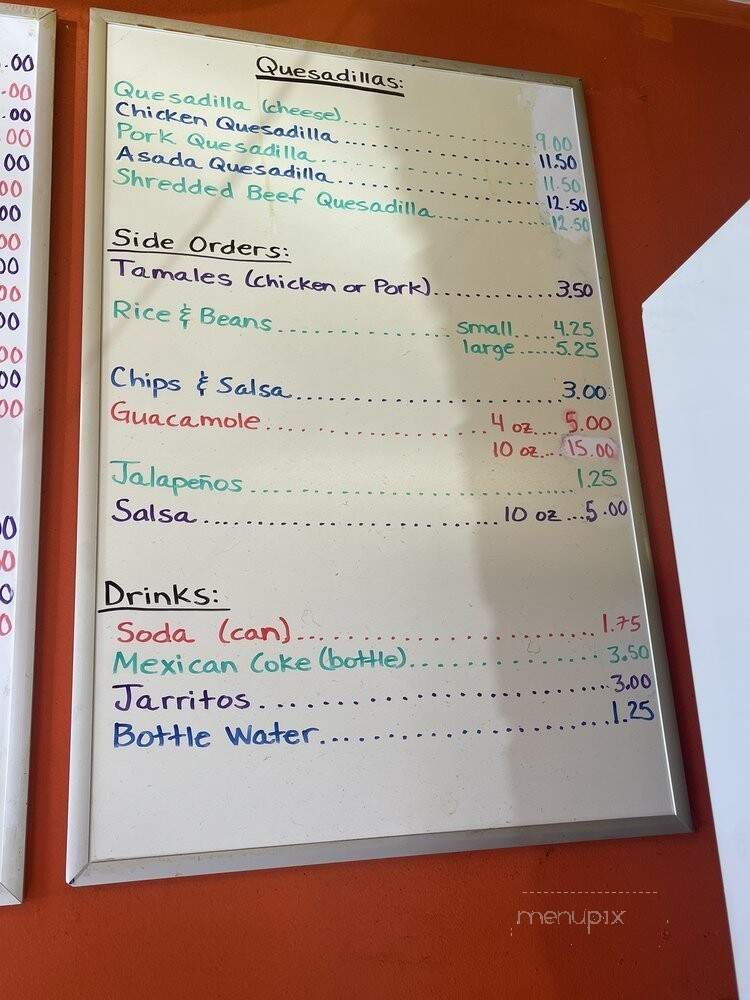 Quesadillas:
Quesadilla (cheese)................ 9.00
Chicken Quesadilla ................ 11.50
Pork Quesadilla.................... 11.50
Asada Quesadilla................... 12.50
Shredded Beef Quesadilla........... 12.50
Side Orders:
Tamales (chicken or Pork)............ 3.50
Rice & Beans.................... small.....4.25
large.....5.25
Chips & Salsa........................ 3.00
Guacamole.................... 4 oz.... 5.00
10 oz... 15.00
Jalapeños............................ 1.25
Salsa........................ 10 oz...5.00
Drinks:
Soda (can)........................... 1.75
Mexican Coke (bottle)................ 3.50
Jarritos............................. 3.00
Bottle Water......................... 1.25
menupix